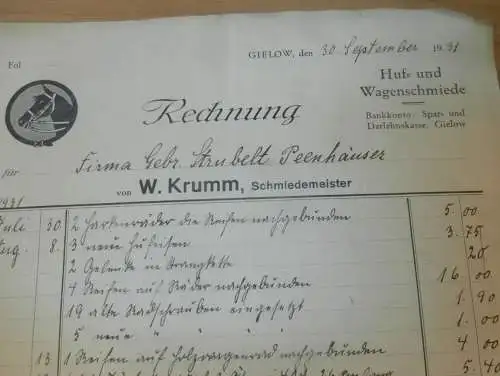 GIELOW, den 30. September 1931
Fol
Huf- und
Wagenschmiede
Rechnung
Bankkonto: Spar- und
Darlehnskasse, Gielow
für Firma Gebr. Strubelt Peenhäuser
von W. Krumm, Schmiedemeister
1931
Juli 30. 2 Harkenräder die Reifen nachgebunden 5.00
Aug. 8. 3 neue Hufeisen 3.75
2 Gelenke in Strangkette 20
4 Reifen auf Räder nachgebunden 16.00
19 alte Radschrauben eingesetzt 1.90
5 neue " " 1.00
13 1 Reifen auf nachgebunden 4.00
5.40